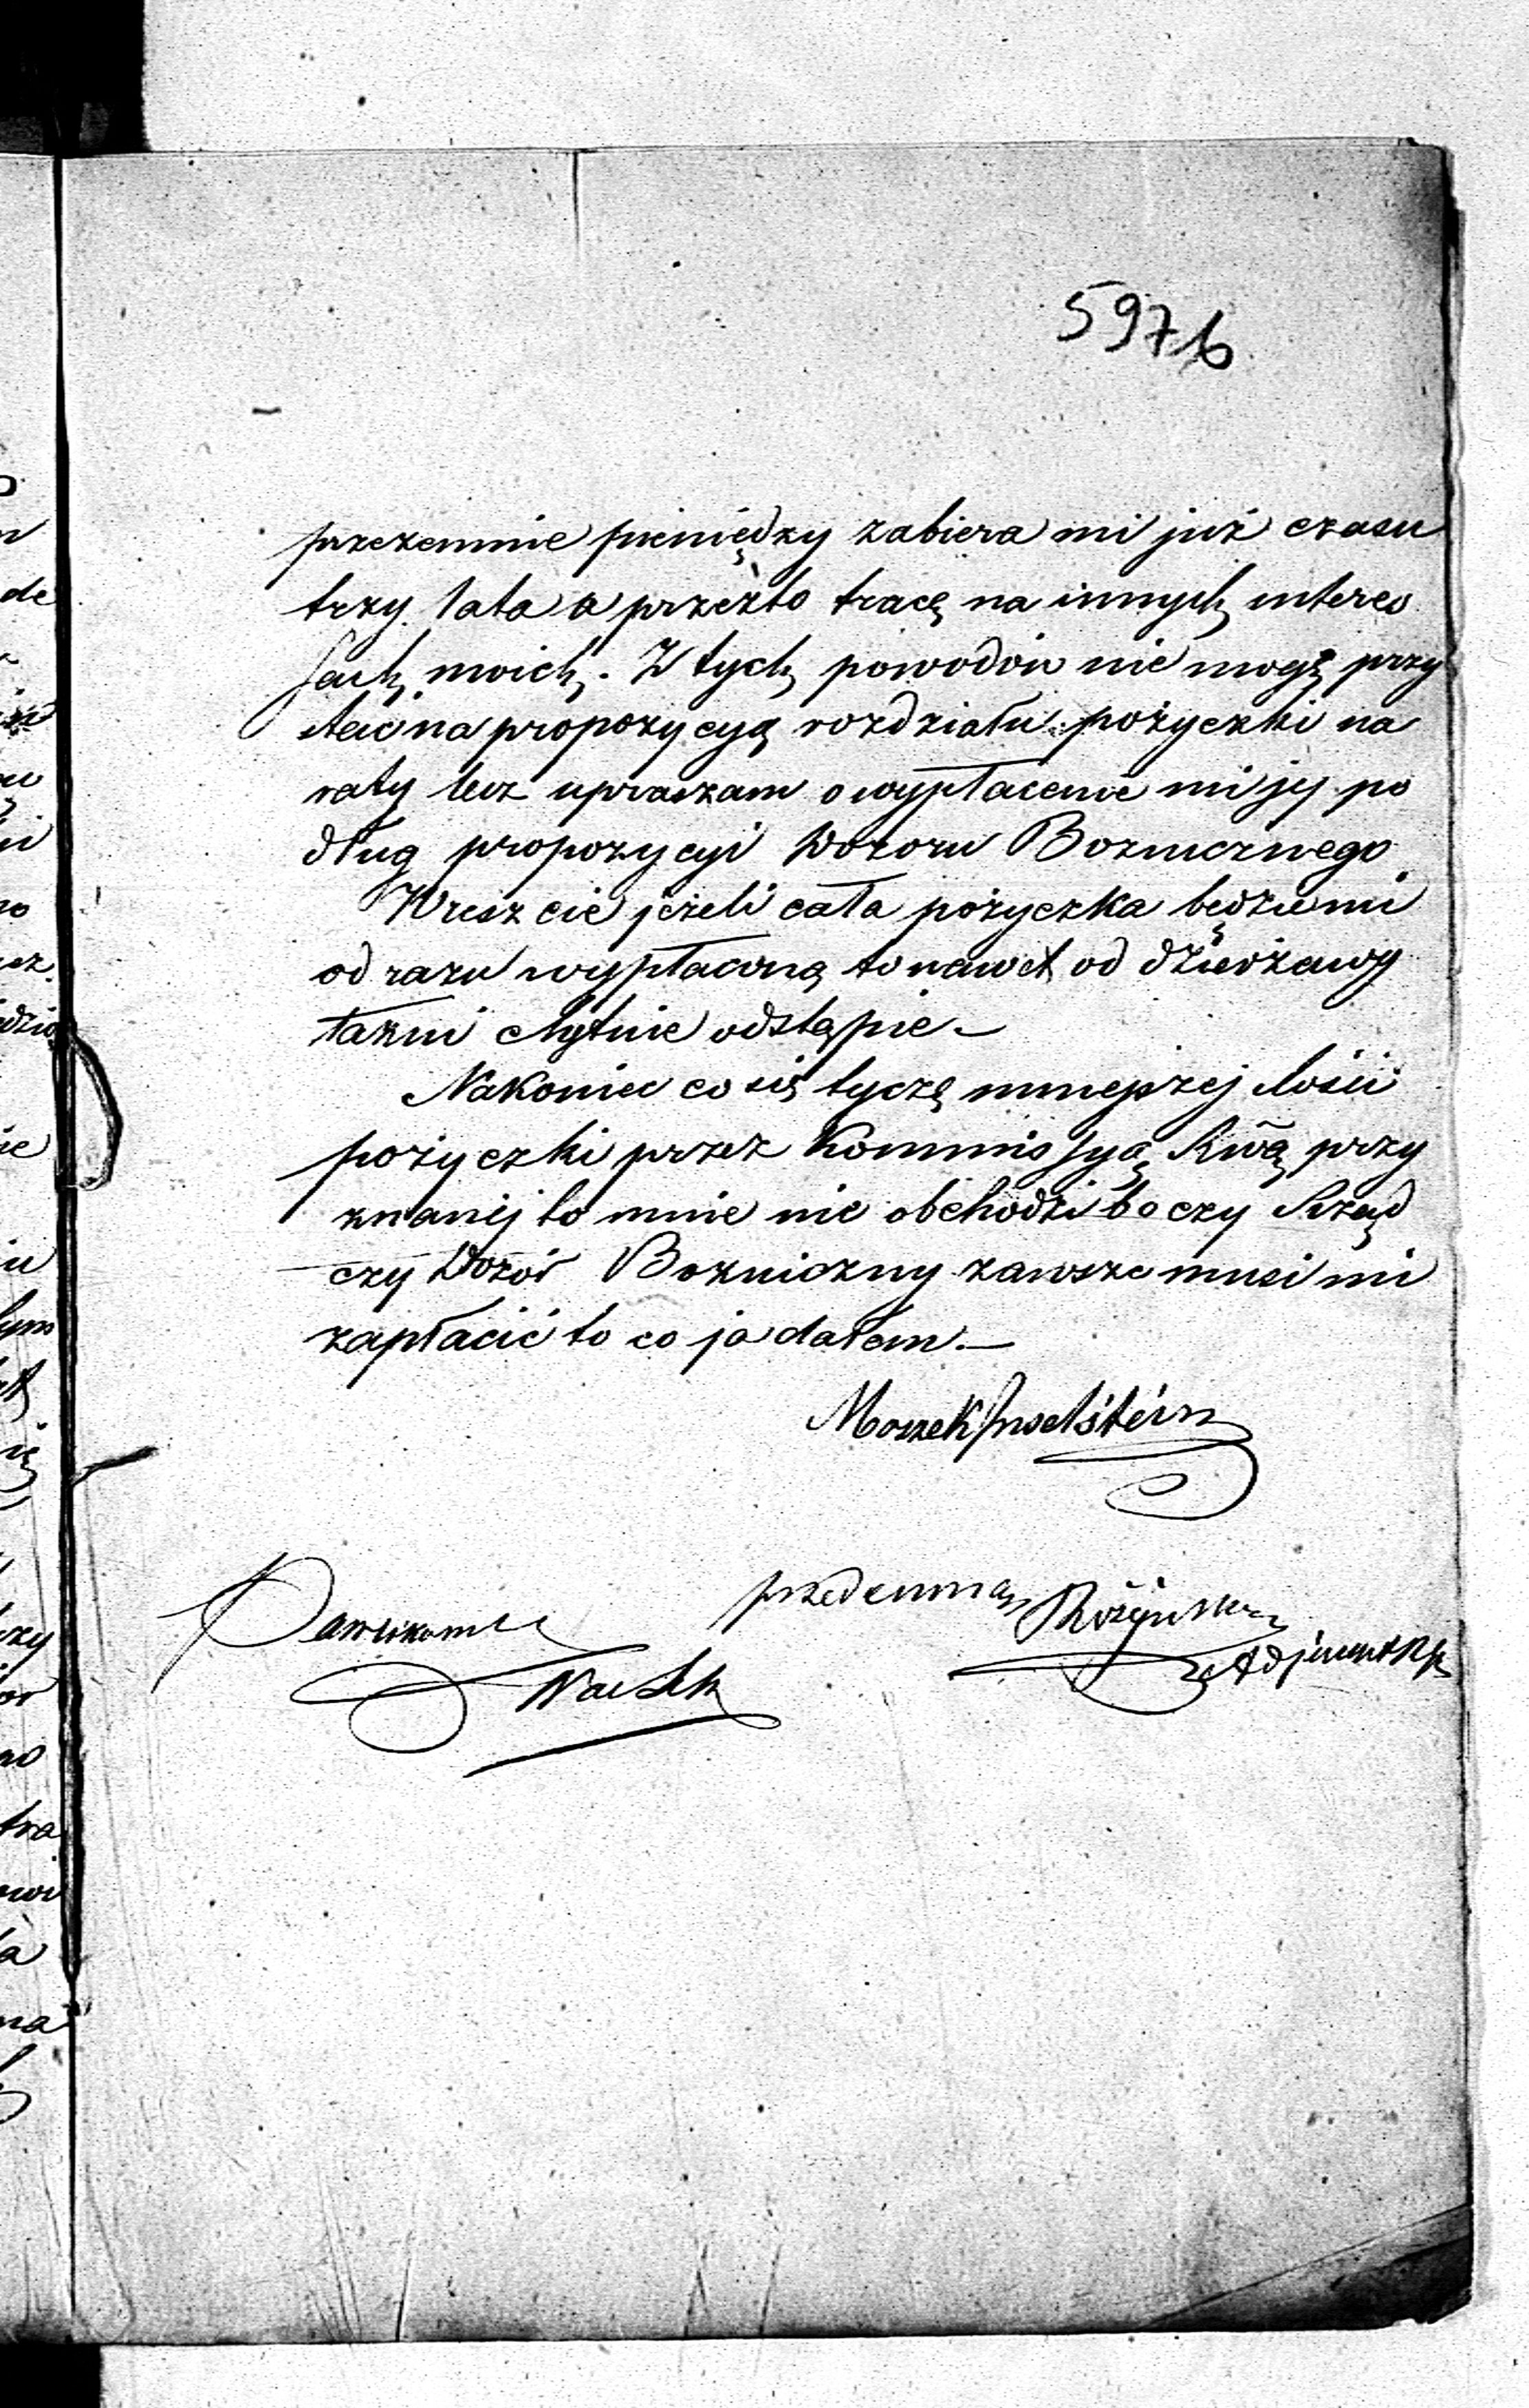 5976
przezemnie pieniędzy zabiera mi już czasu
trzy lata a przézto tracę na innych interes
sach moich. Z tych powodów nie mogę przy
stać na propozycyą rozdziału pożyczki na
raty lecz upraszam o wypłacenie mi jej po
dług propozycyi Dozoru Boznicznego
Wreszcie jeżeli cała pożyczka będzie mi
od razu wypłaconą to nawet od dzierżawy
łaźni chętnie odstąpie.—
Nakoniec co się tyczę mniejszej ilości
pożyczki przez Kommissyą Rwą przy
znanej to mnie nie obchodzi bo czy Rząd
czy Dozór Bozniczny zawsze musi mi
zapłacić to co ja dałem.—
Moszek Inselstein
przedemną Różyński
Adjunkt